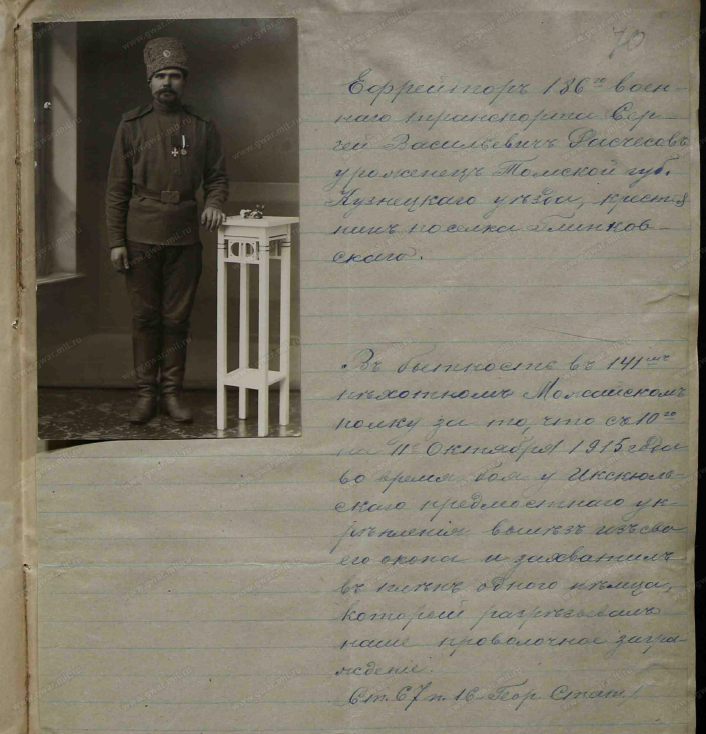 70
Ефрейторъ 186го воен-
наго транспорта Сер-
гей Васильевичъ Расчесовъ
уроженецъ Томской губ.
Кузнецкаго уѣзда, крестья
нинъ поселка Глинков-
скаго.
Въ бытность въ 141мъ
пѣхотномъ Можайскомъ
полку за то, что съ 10го
на 11е Октября 1915 года
во время боя у Икскюль-
скаго предмостнаго ук-
рѣпленія вылѣзъ изъ сво
его окопа и захватилъ
въ плѣнъ одного нѣмца,
который разрѣзывалъ
наше проволочное загра-
ждение.
Ст. 67 п. 16 Геор. Стат.
www.gwar.mil.ru